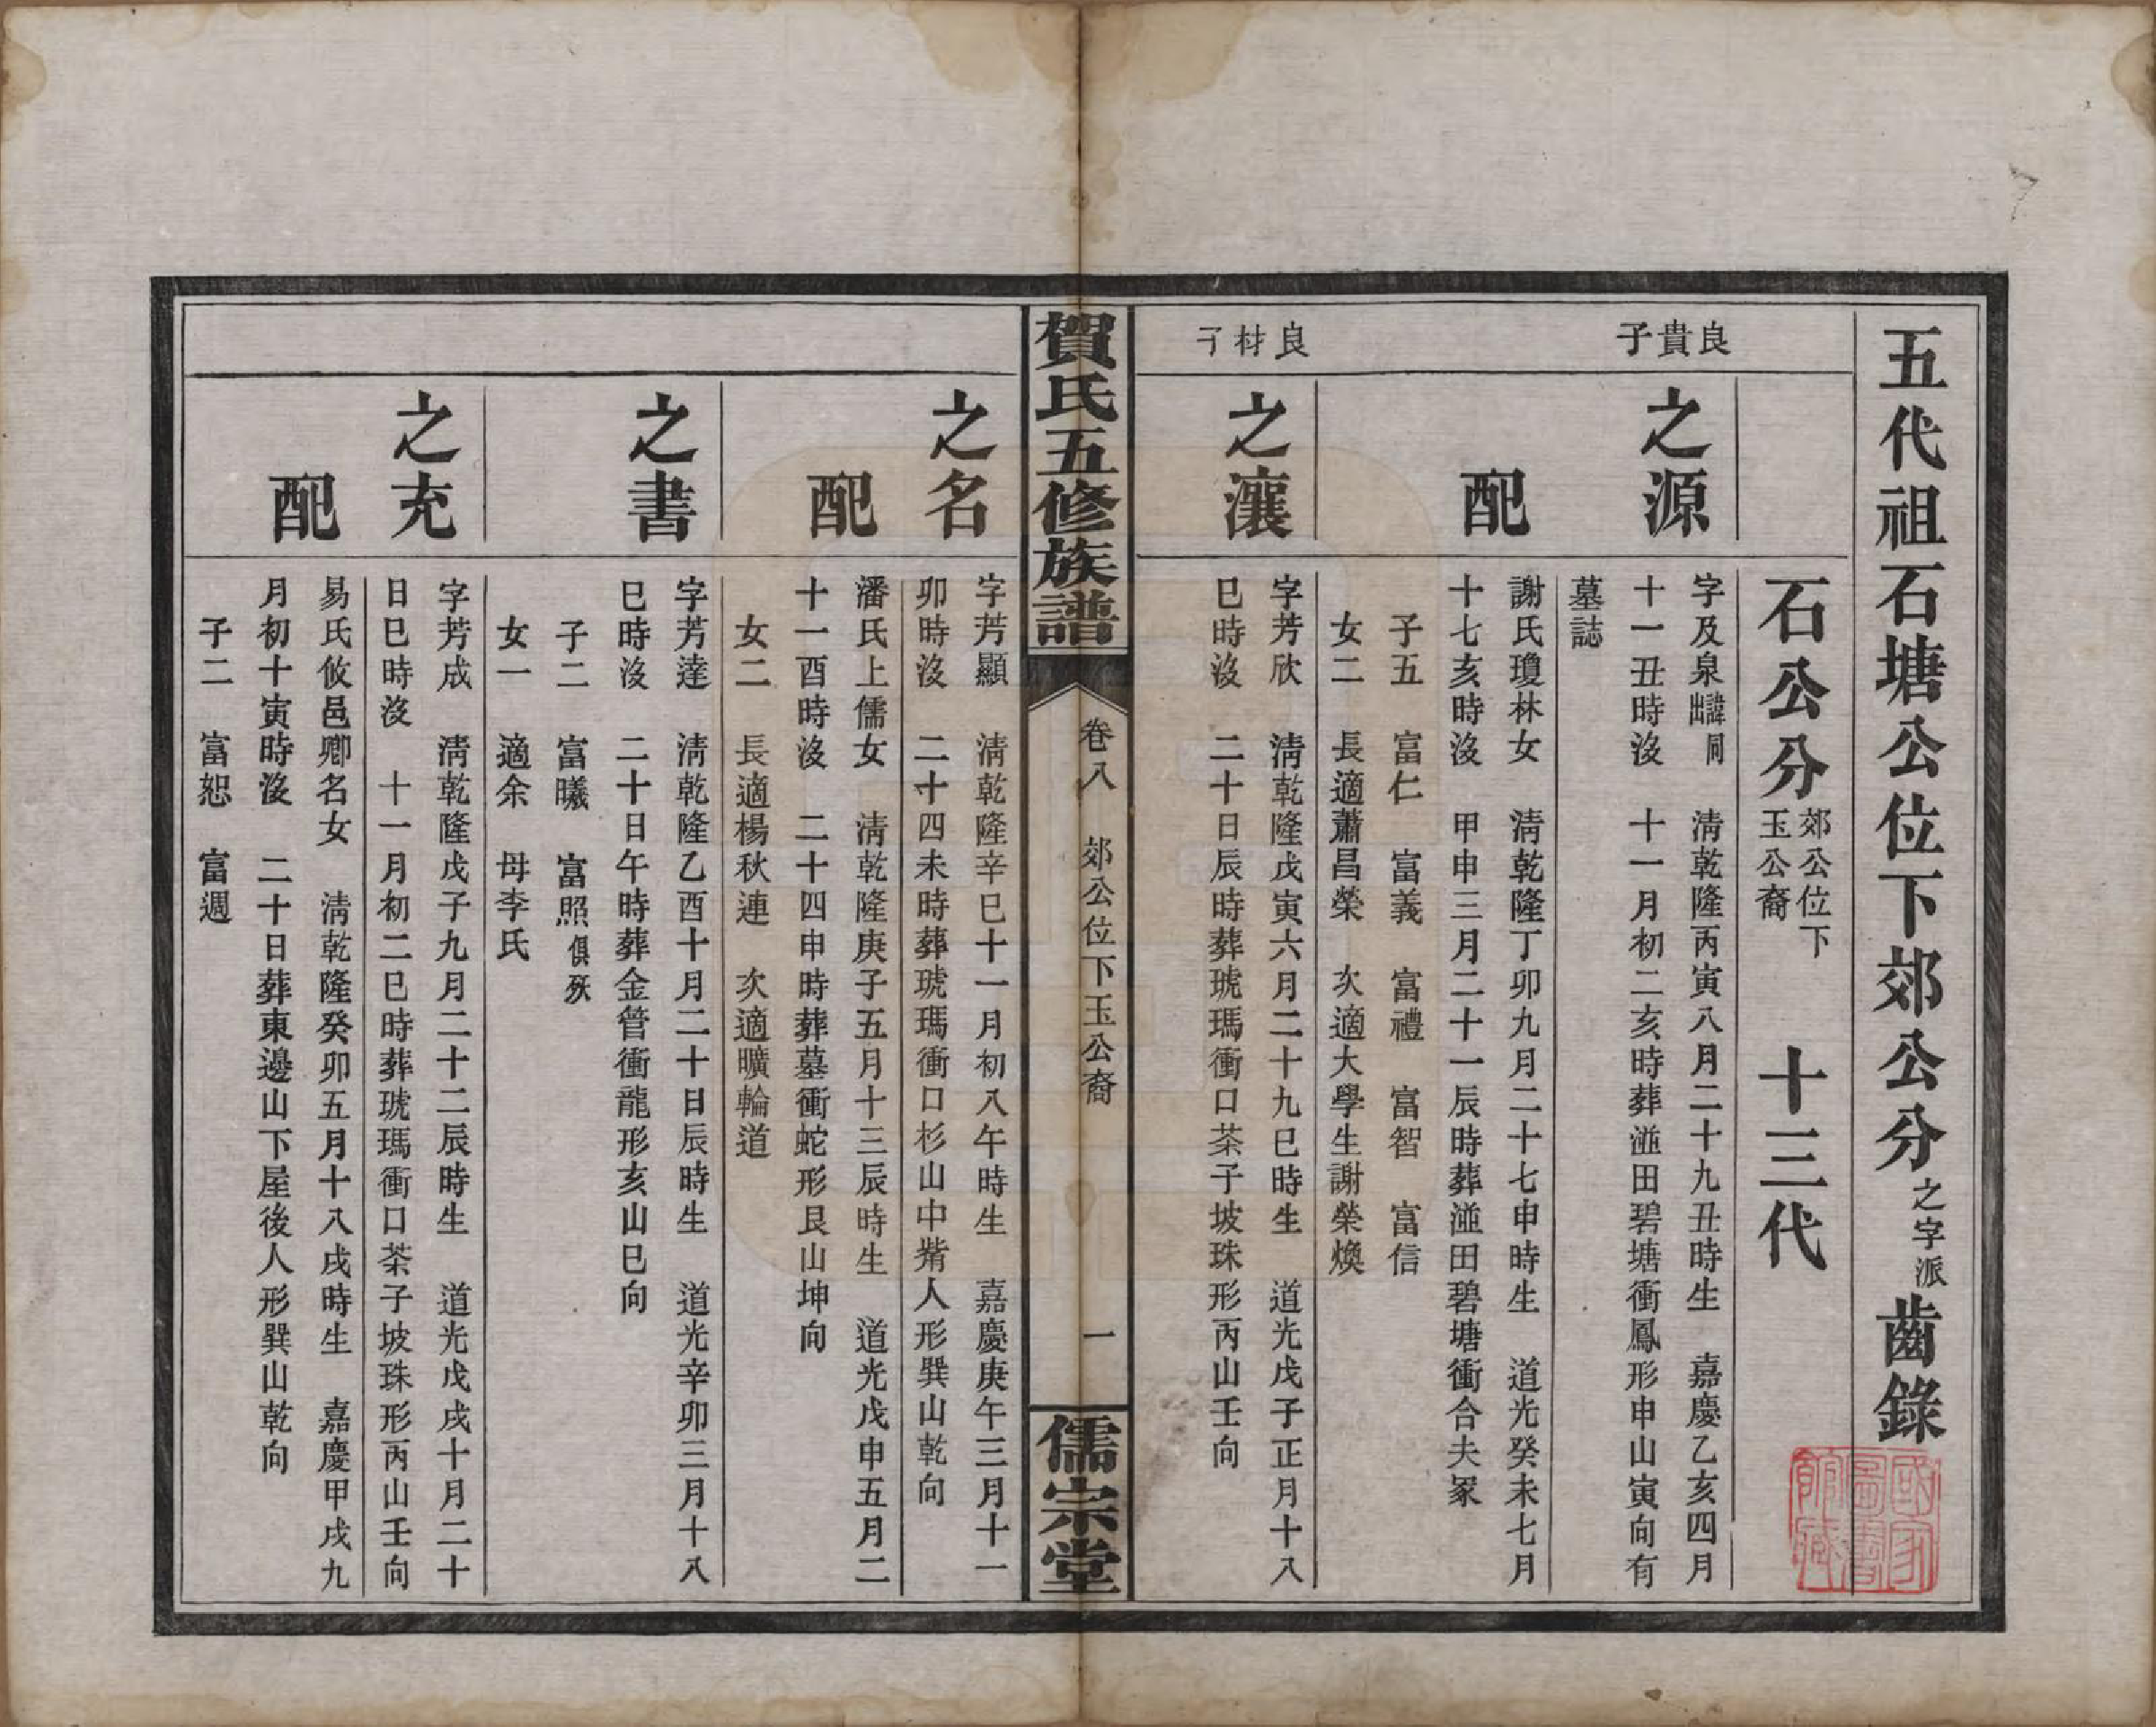 五代祖石塘公位下郊公分之字派齒錄
石公分郊公位下玉公裔 十三代
良貴子
之源
字及泉諱同出 清乾隆丙寅八月二十九丑時生 嘉慶乙亥四月
十一丑時沒 十一月初二亥時葬湴田碧塘衝鳳形申山寅向有
墓誌
配
謝氏瓊林女 清乾隆丁卯九月二十七申時生 道光癸未七月
十七亥時沒 甲申三月二十一辰時葬湴田碧塘衝合夫冢
子五 富仁 富義 富禮 富智 富信
女二 長適蕭昌榮 次適大學生謝榮煥
良材子
之瀼
字芳欣 清乾隆戊寅六月二十九巳時生 道光戊子正月十八
巳時沒 二十日辰時葬琥瑪衝口茶子坡珠形丙山壬向
賀氏五修族譜
卷八 郊公位下玉公裔 一
儒宗堂
之名
字芳顯 清乾隆辛巳十一月初八午時生 嘉慶庚午三月十一
卯時沒 二十四未時葬琥瑪衝口杉山中嘴人形巽山乾向
配
潘氏上儒女 清乾隆庚子五月十三辰時生 道光戊申五月二
十一酉時沒 二十四申時葬墓衝蛇形艮山坤向
女二 長適楊秋連 次適曠輪道
之書
字芳達 清乾隆乙酉十月二十日辰時生 道光辛卯三月十八
巳時沒 二十日午時葬金管衝龍形亥山巳向
子二 富曦 富照俱殀
女一 適余 母李氏
之充
字芳成 清乾隆戊子九月二十二辰時生 道光戊戌十月二十
日巳時沒 十一月初二巳時葬琥瑪衝口茶子坡珠形丙山壬向
配
易氏攸邑卿名女 清乾隆癸卯五月十八戌時生 嘉慶甲戌九
月初十寅時沒 二十日葬東邊山下屋後人形巽山乾向
子二 富恕 富週
國家圖書館藏